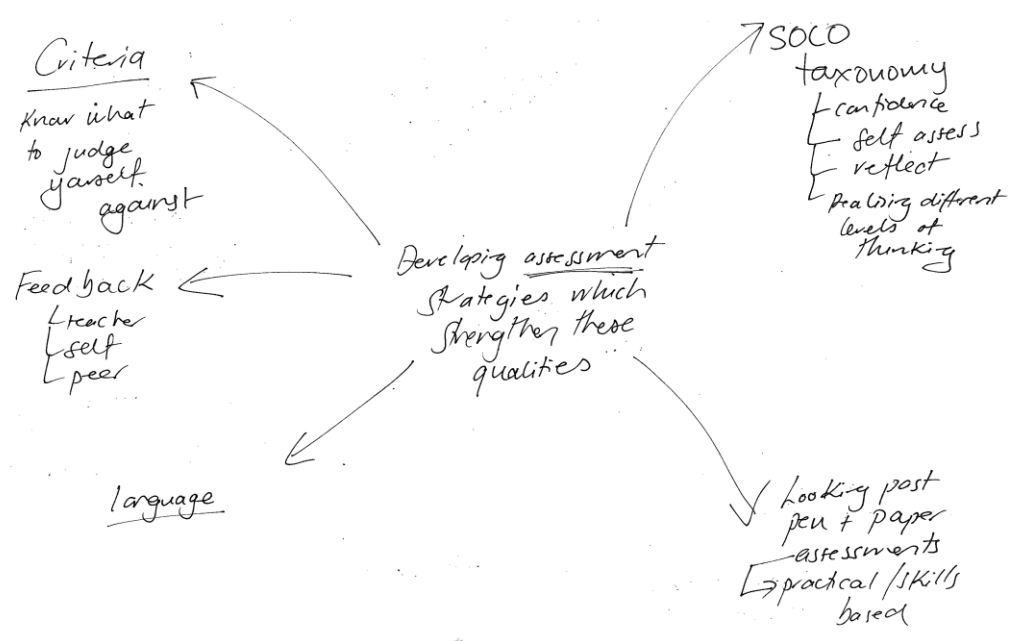 Criteria
Know what
to judge
yourself
against
Feedback
teacher
self
peer
language
Developing assessment
strategies which
strengthen these
qualities
SOLO
taxonomy
confidence
self assess
reflect
Realising different
levels of
thinking
Looking past
pen + paper
assessments
practical / skills
based